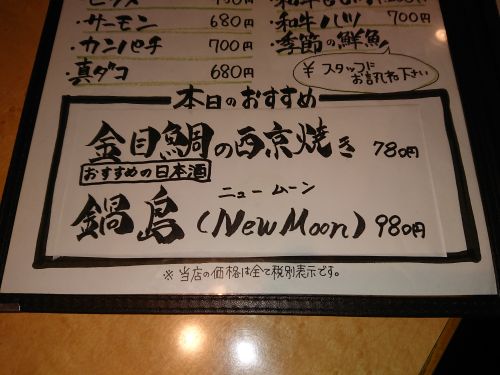 ・サーモン 680円
・カンパチ 700円
・真ダコ 680円
・和牛ハツ 700円
・季節の鮮魚
¥ スタッフに
お訊ね下さい
本日のおすすめ
金目鯛の西京焼き 780円
おすすめの日本酒
ニュームーン
鍋島 (New Moon) 980円
※当店の価格は全て税別表示です。